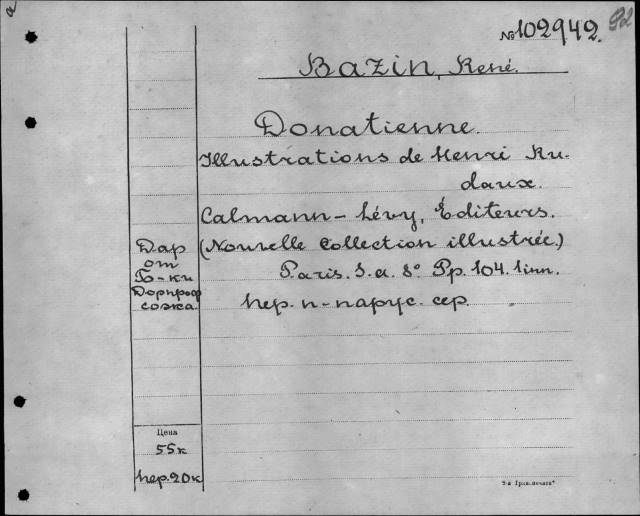 №102942.
Bazin, René.
Donatienne.
Illustrations de Henri Ru-
daux.
Calmann-Lévy, Éditeurs.
(Nouvelle Collection illustrée.)
Paris. S. a. 8° Pp. 104. 1inn.
пер. п-парус. сер.
Дар
от
Б-ки
Дорпроф
сожа.
Цена
55к
пер. 20к